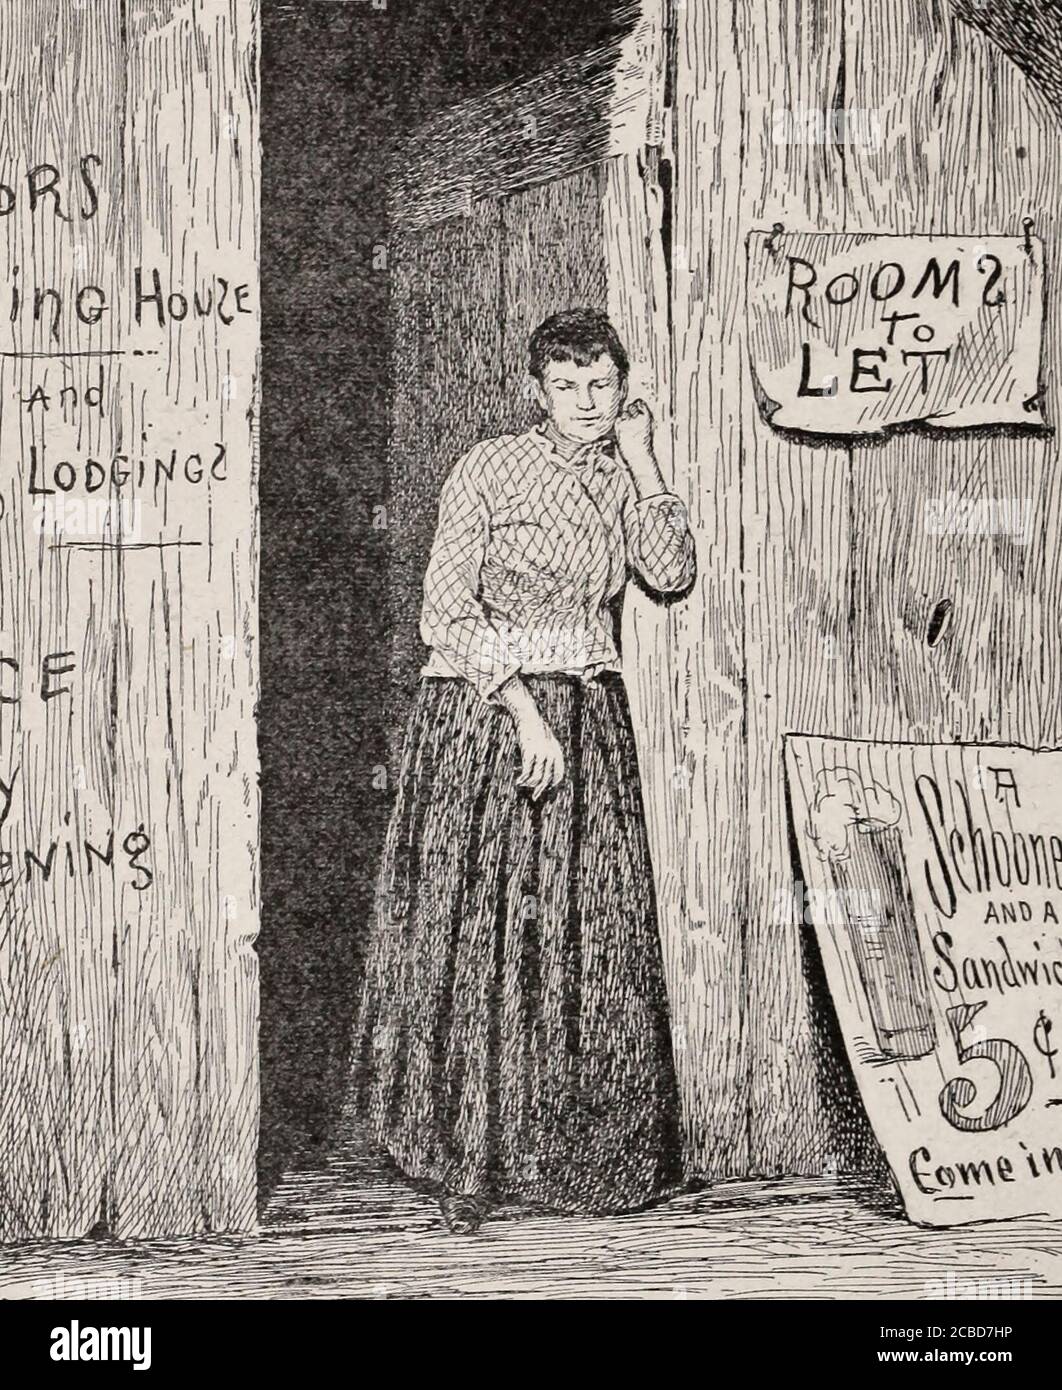 ORS
ing HOUSE
And
LODGINGS
CE
Y
ENING
ROOMS
to
LET
A
Schoone
AND A
Sandwic
5¢
Come in
alamy
Image ID: 2CBD7HP
www.alamy.com